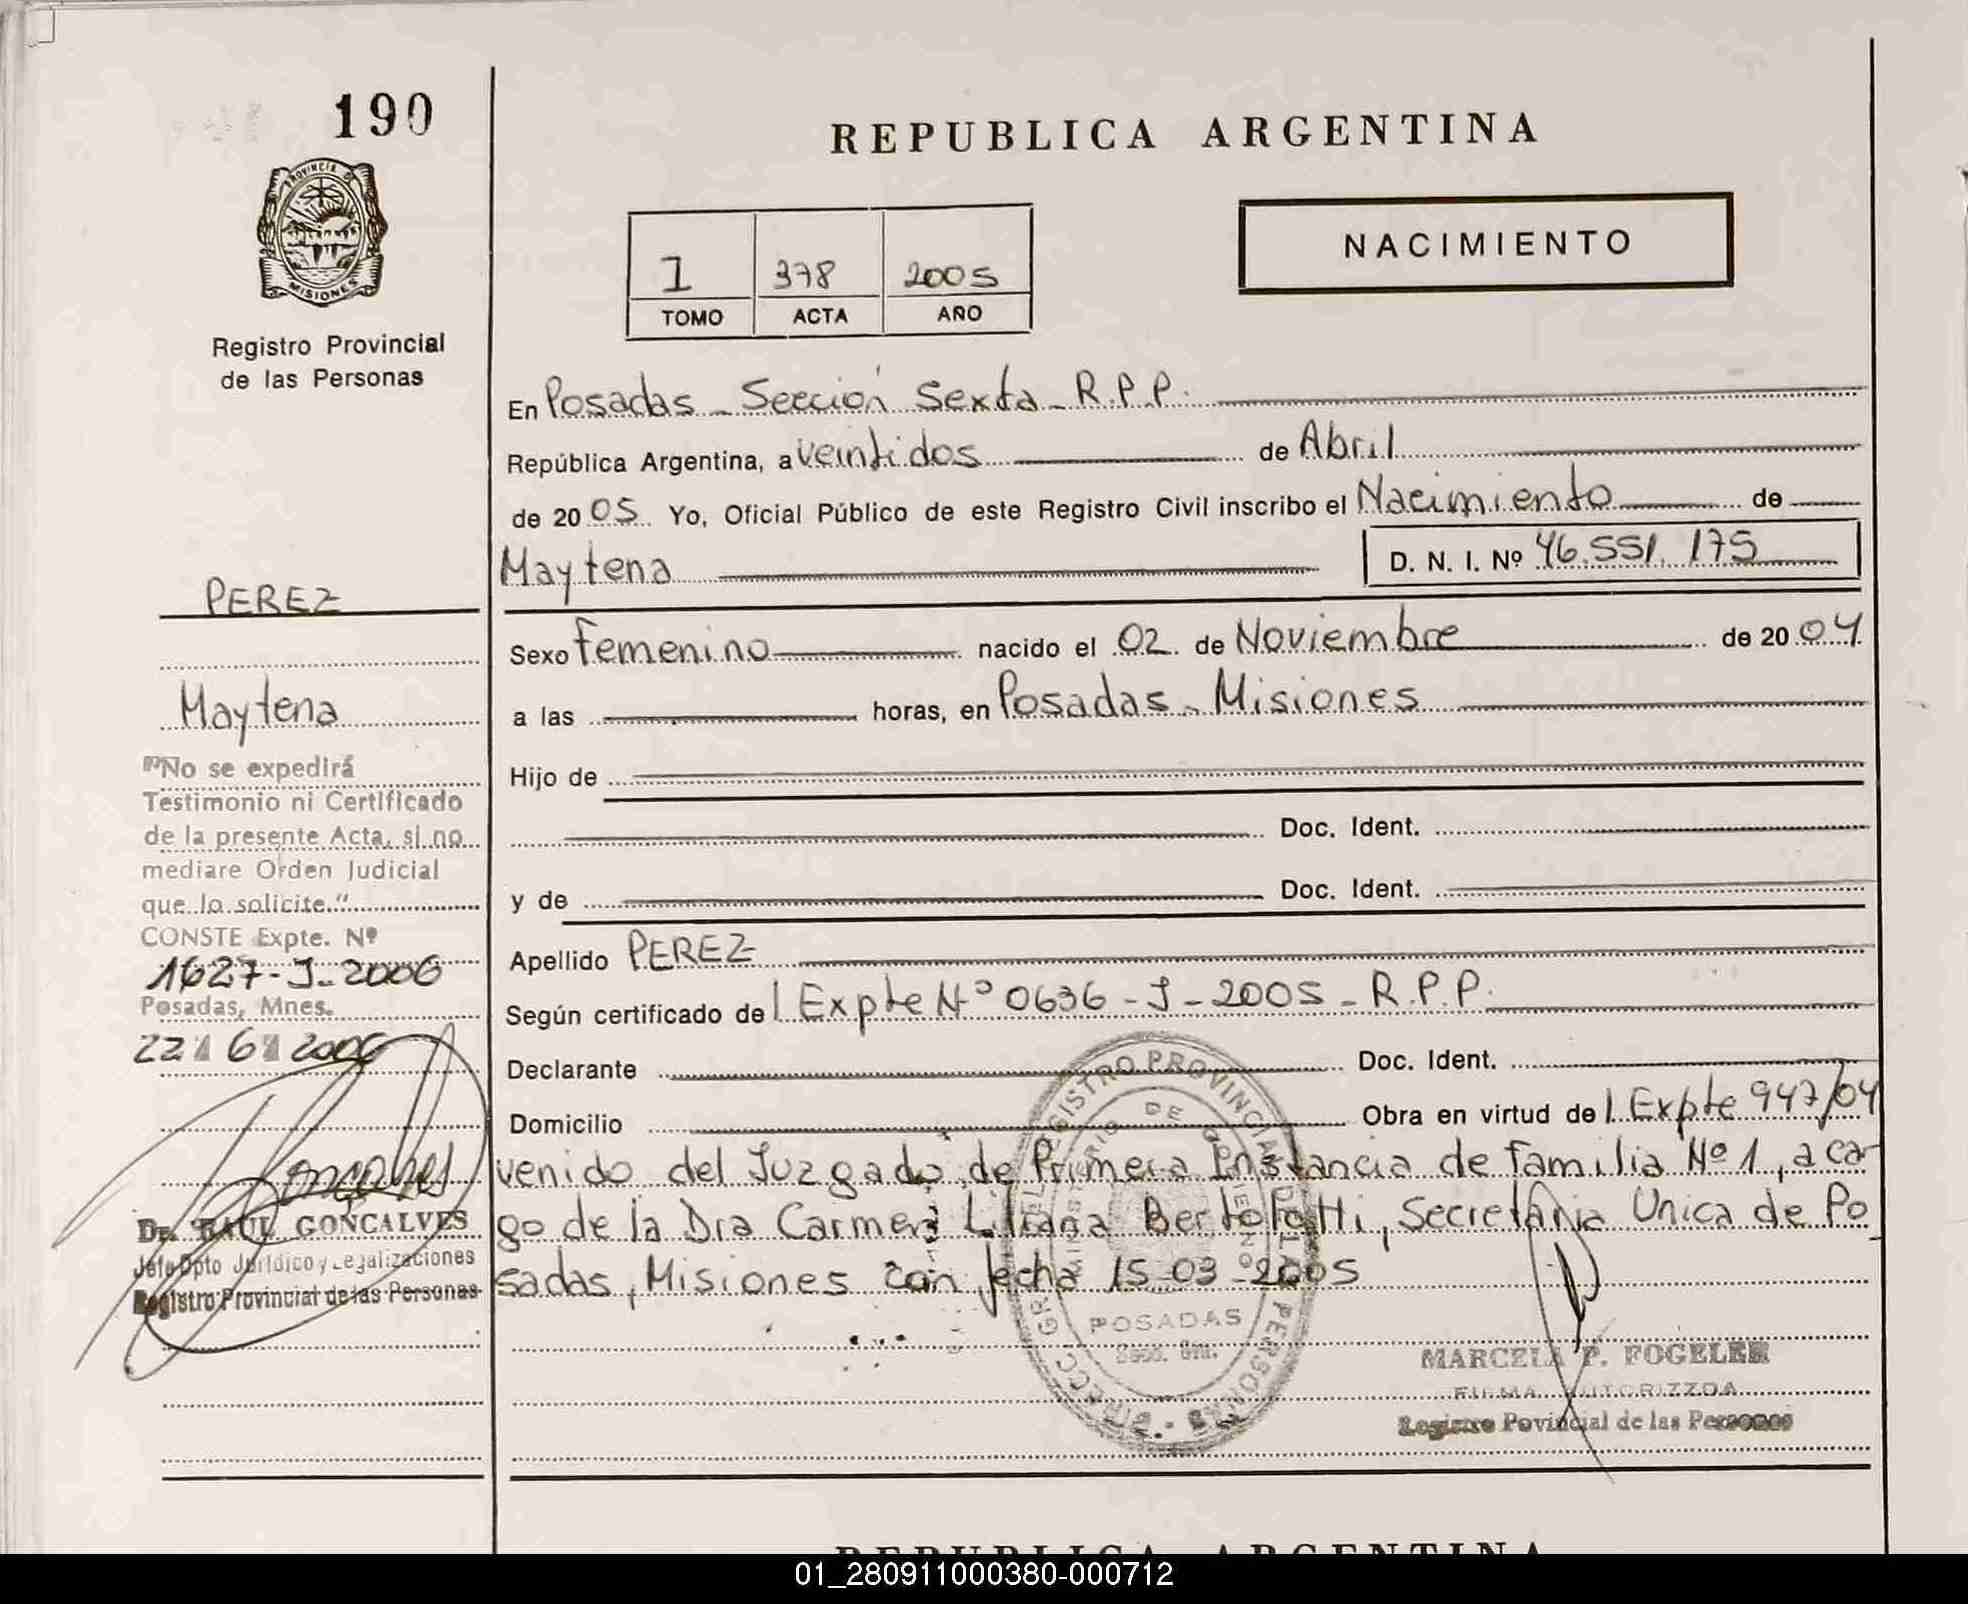 190
PROVINCIA DE
MISIONES
Registro Provincial
de las Personas
PEREZ
Maytena
"No se expedirá
Testimonio ni Certificado
de la presente Acta, si no
mediare Orden Judicial
que lo solicite."
CONSTE Expte. Nº
1627-J-2006
Posadas, Mnes.
22 6 2006
Goncalves
Dr. RAUL GONCALVES
Jefe Dpto Jurídico y Legalizaciones
Registro Provincial de las Personas
REPUBLICA ARGENTINA
1 378 2005
TOMO ACTA AÑO
NACIMIENTO
En Posadas - Sección Sexta - R.P.P.
República Argentina, a veintidos de Abril
de 2005 Yo, Oficial Público de este Registro Civil inscribo el Nacimiento de
Maytena D. N. I. Nº 46.551.175
Sexo Femenino nacido el 02 de Noviembre de 2004
a las horas, en Posadas - Misiones
Hijo de
Doc. Ident.
y de Doc. Ident.
Apellido PEREZ
Según certificado del Expte Nº 0636 - J - 2005 - R.P.P.
Declarante Doc. Ident.
Domicilio Obra en virtud del Expte 947/04
venido del Juzgado de Primera Instancia de familia Nº 1, a car
go de la Dra Carmen Liliana Bertolotti, Secretaria Unica de Po
sadas, Misiones con fecha 15-03-2005
REGISTRO PROVINCIAL DE LAS PERSONAS
MINISTERIO DE GOBIERNO
POSADAS
Secc. 6ta.
MARCELA P. FOGELER
FIRMA AUTORIZZDA
Registro Povincial de las Personas
REPUBLICA ARGENTINA
01_280911000380-000712